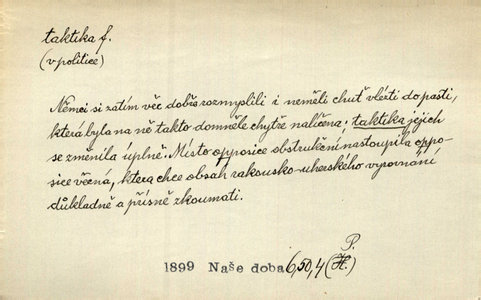 taktika f.
(v politice)
Němci si zatím věc dobře rozmyslili i neměli chuť vlézti do pasti,
která byla na ně takto domněle chytře nalíčena; taktika jejich
se změnila úplně. Místo opposice obstrukční nastoupila oppo-
sice věcná, která chce obsah rakousko-uherského vyrovnání
důkladně a přísně zkoumati.
P.
1899 Naše doba 6,50,4 (H.)